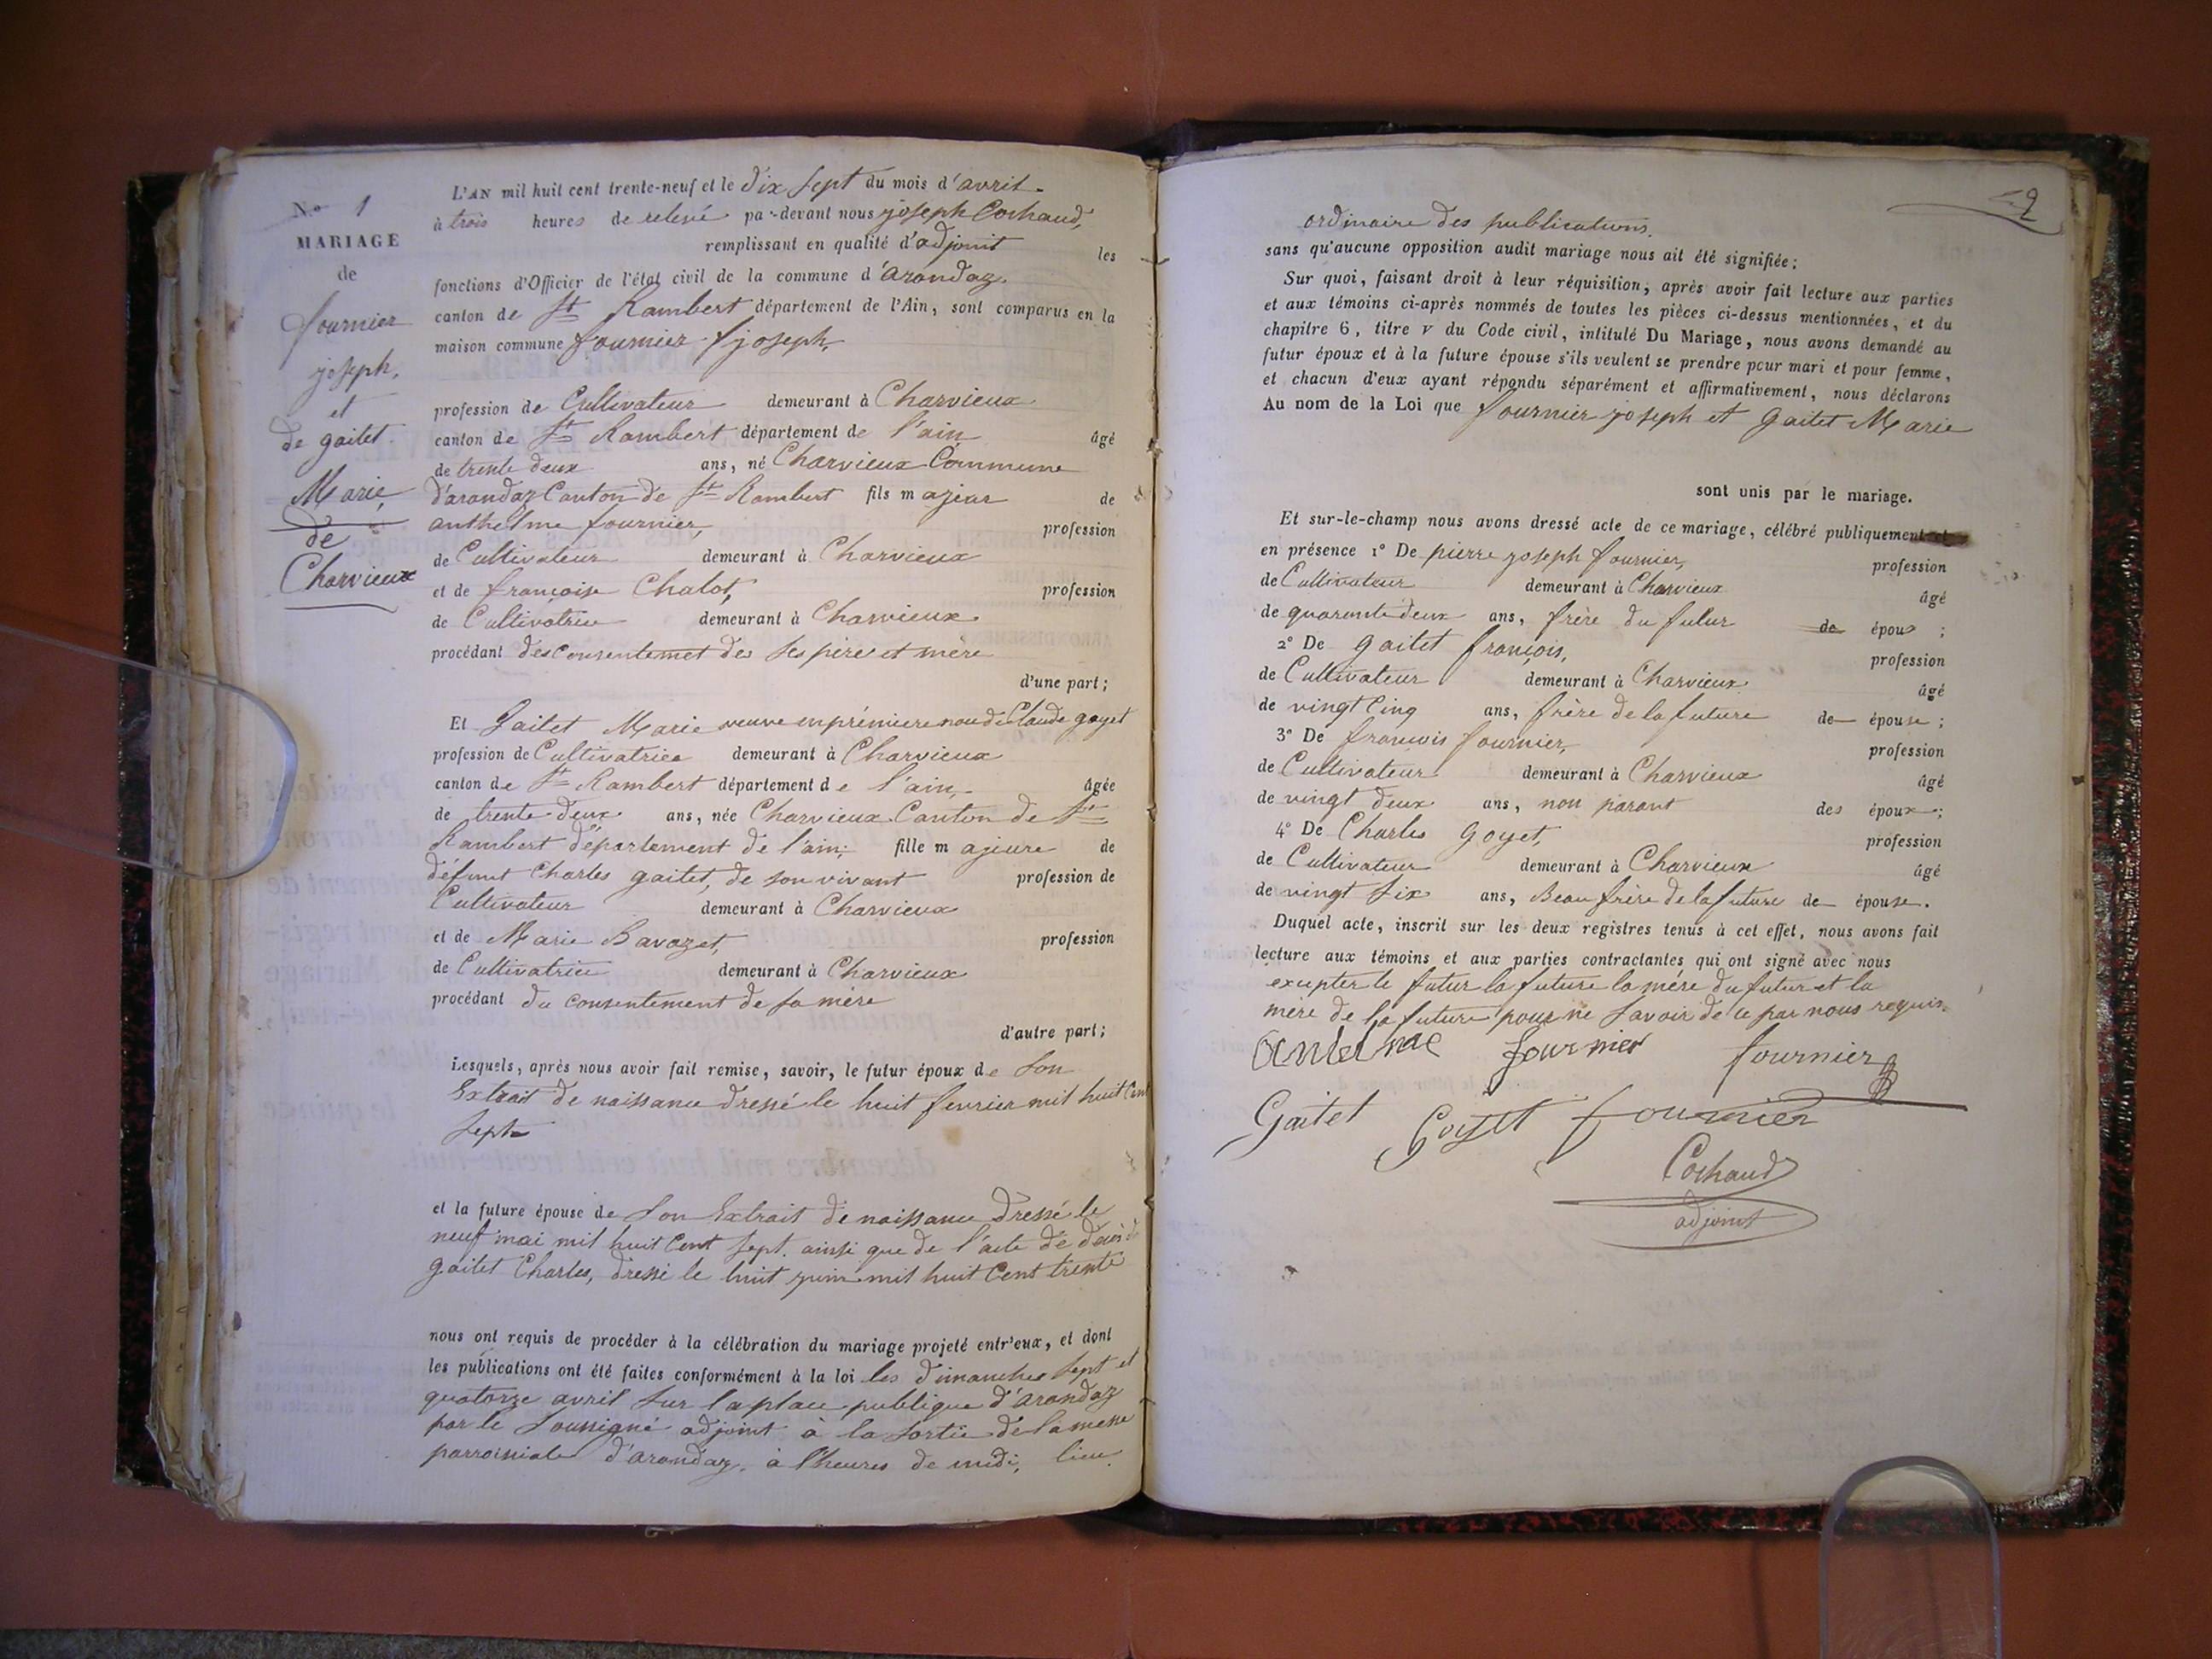 N.º 1
MARIAGE
de
fournier
joseph,
et
de gaitet
Marie,
de
Charvieux
L'AN mil huit cent trente-neuf et le dix sept du mois d'avril
à trois heures de relevé par-devant nous joseph Cochaud,
remplissant en qualité d'adjoint les
fonctions d'Officier de l'état civil de la commune d'arandaz
canton de St Rambert département de l'Ain, sont comparus en la
maison commune fournier joseph,
profession de Cultivateur demeurant à Charvieux
canton de St Rambert département de l'ain âgé
de trente deux ans, né Charvieux Commune
d'arandaz Canton de St Rambert fils majeur de
anthelme fournier, profession
de Cultivateur demeurant à Charvieux
et de françoise Chalot, profession
de Cultivatrice demeurant à Charvieux
procédant des consentemet des ses pères et mère
d'une part;
Et Gaitet Marie veuve en première de Claude goyet
profession de Cultivatrice demeurant à Charvieux
canton de St Rambert département de l'ain, âgée
de trente deux ans, née Charvieux Canton de St
Rambert département de l'ain; fille majeure de
défunt Charles gaitet, de son vivant profession de
Cultivateur demeurant à Charvieux
et de Marie Bavozet, profession
de Cultivatrice demeurant à Charvieux
procédant du consentement de sa mère
d'autre part;
Lesquels, après nous avoir fait remise, savoir, le futur époux de son
Extrait de naissance dressé le huit fevrier mil huit Cent
sept
et la future épouse de son Extrait de naissance dressé le
neuf mai mil huit Cent sept. ainsi que de l'acte de décès de
gaitet Charles, dressé le huit juin mil huit Cent trente
nous ont requis de procéder à la célébration du mariage projeté entr'eux, et dont
les publications ont été faites conformément à la loi les dimanches sept et
quatorze avril sur la place publique d'arandaz
par le soussigné adjoint à la sortie de la messe
parroissiale d'arandaz, à l'heures de midi, lieu
2
ordinaire des publications.
sans qu'aucune opposition audit mariage nous ait été signifiée;
Sur quoi, faisant droit à leur réquisition, après avoir fait lecture aux parties
et aux témoins ci-après nommés de toutes les pièces ci-dessus mentionnées, et du
chapitre 6, titre v du Code civil, intitulé Du Mariage, nous avons demandé au
futur époux et à la future épouse s'ils veulent se prendre pour mari et pour femme,
et chacun d'eux ayant répondu séparément et affirmativement, nous déclarons
Au nom de la Loi que fournier joseph et gaitet Marie
sont unis par le mariage.
Et sur-le-champ nous avons dressé acte de ce mariage, célébré publiquement
en présence 1º De pierre joseph fournier, profession
de Cultivateur demeurant à Charvieux âgé
de quarante deux ans, frère du futur de époux ;
2º De gaitet françois, profession
de Cultivateur demeurant à Charvieux âgé
de vingt Cinq ans, frère de la future de épouse ;
3º De francois fournier, profession
de Cultivateur demeurant à Charvieux âgé
de vingt deux ans, non parant des époux ;
4º De Charles goyet, profession
de Cultivateur demeurant à Charvieux âgé
de vingt six ans, Beau frère de la future de épouse.
Duquel acte, inscrit sur les deux registres tenus à cet effet, nous avons fait
lecture aux témoins et aux parties contractantes qui ont signé avec nous
exepter le futur la future la mère du futur et la
mère de la future pour ne savoir de ce par nous requis.
fournier fournier
Gaitet Goyet fournier
Cochaud
adjoint